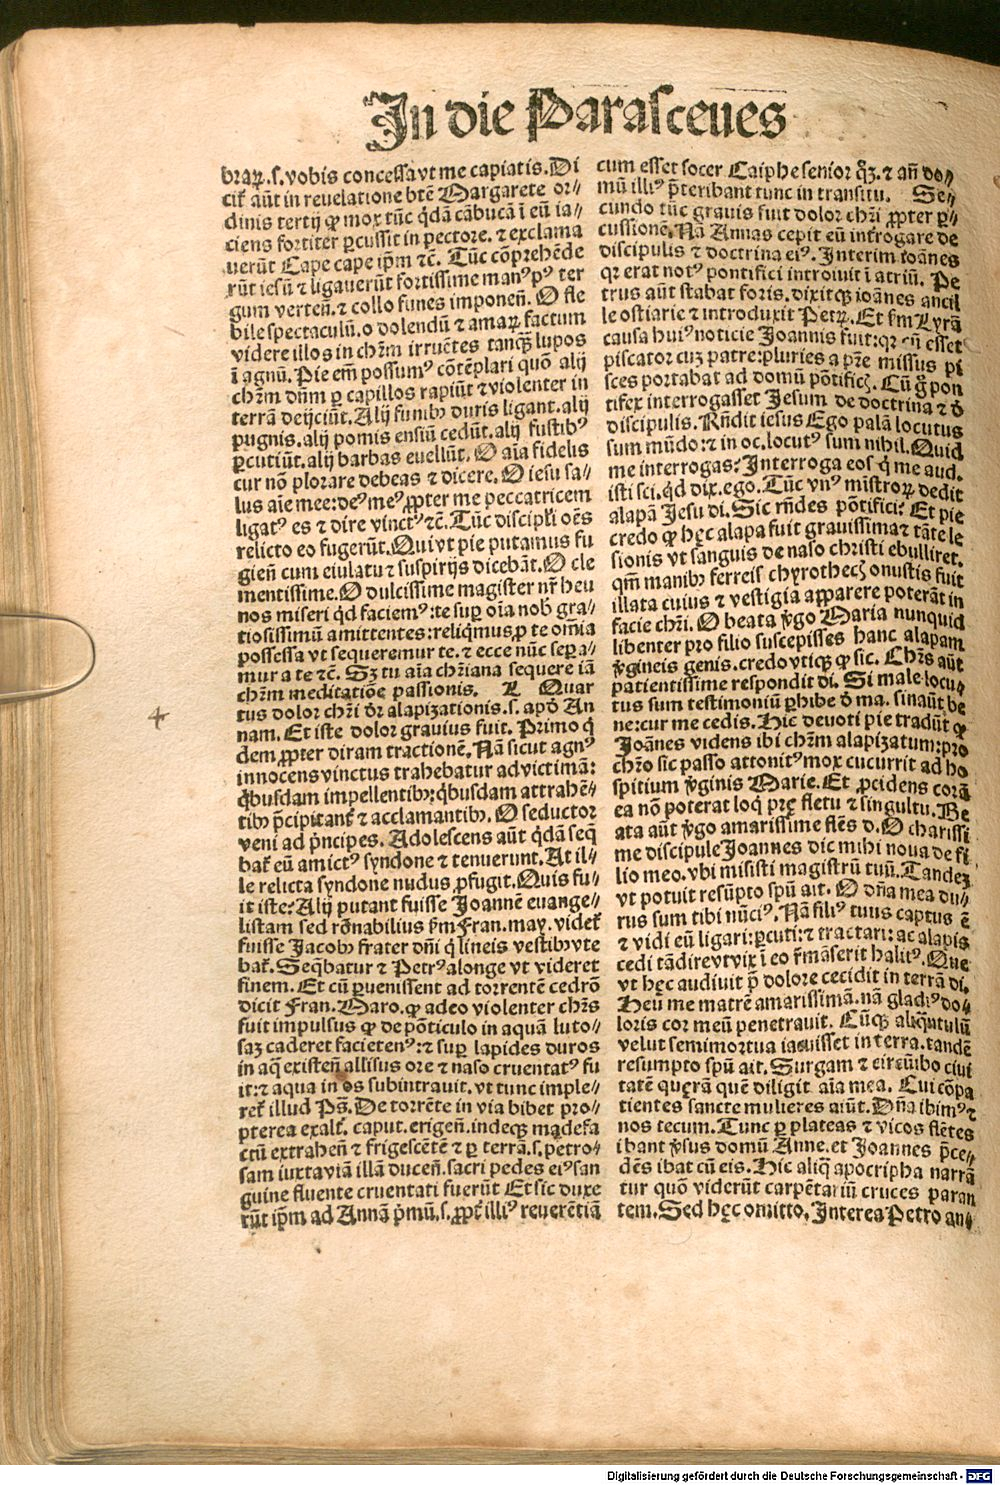 In die Parasceues
braꝝ.s.vobis concessa vt me capiatis. Di
citͬ aūt in reuelatione btē Margarete or⸗
dinis tertij ꝙ mox tūc qͥdā cābucā ī eū ia⸗
ciens fortiter ꝑcussit in pectore.⁊ exclama
uerūt Cape cape ip̄m ⁊c̄. Tūc cōprehēde
rūt iesū ⁊ ligauerūt fortissime manꝰ pꝰ ter
gum verten̄.⁊ collo funes imponen̄. O fle
bile spectaculū.o dolendū ⁊ amaꝝ factum
videre illos in chr̄m irruētes tanqͣ lupos
ī agnū. Pie em̄ possumꝰ cōtēplari quō alij
chr̄m dn̄m ꝑ capillos rapiūt ⁊ violenter in
terrā deijciūt. Alij funibꝰ duris ligant.alij
pugnis.alij pomis ensiū cedūt.alij fustibꝰ
ꝑcutiūt.alij barbas euellūt. O aīa fidelis
cur nō plorare debeas ⁊ dicere. O iesu sa⸗
lus aīe mee:deꝰ meꝰ ꝓpter me peccatricem
ligatꝰ es ⁊ dire vinctꝰ ⁊c̄. Tūc discipl̄i oēs
relicto eo fugerūt. Qui vt pie putamus fu
gien̄ cum eiulatu ⁊ suspirijs dicebāt. O cle
mentissime. O dulcissime magister nr̄ heu
nos miseri qͥd faciemꝰ:te suꝑ oīa nob̄ gra⸗
tiosissimū amittentes:reliqͥmus ꝓ te om̄ia
possessa vt sequeremur te.⁊ ecce nūc seꝑa⸗
mur a te ⁊c̄. Sꝫ tu aīa chr̄iana sequere iā
chr̄m meditatiōe passionis. L Quar
tus dolor chr̄i d̄r alapizationis.s. apd̓ An
nam. Et iste dolor grauius fuit. Primo qͥ
dem ꝓpter diram tractionē. Nā sicut agnꝰ
innocens vinctus trahebatur ad victimā:
qͥbusdam impellentibꝰ:qͥbusdam attrahē⸗
tibꝰ p̄cipitantͥ ⁊ acclamantibꝰ. O seductor
veni ad pͥncipes. Adolescens aūt qͥdā seqͣ
batͬ eū amictꝰ syndone ⁊ tenuerunt. At il⸗
le relicta syndone nudus ꝓfugit. Quis fu⸗
it iste? Alij putant fuisse Joannē euange⸗
listam sed rōnabilius ẜm Fran. may. videtͬ
fuisse Jacobꝰ frater dn̄i qͥ lineis vestibꝰ vte
batͬ. Seqͣbatur ⁊ Petrꝰ a longe vt videret
finem. Et cū ꝑuenissent ad torrentē cedrō
dicit Fran. Maro. ꝙ adeo violenter chr̄s
fuit impulsus ꝙ de pōticulo in aquā luto⸗
saꝫ caderet facietenꝰ:⁊ suꝑ lapides duros
in aq̄ existen̄ allisus ore ⁊ naso cruentatꝰ fu
it:⁊ aqua in os subintrauit.vt tunc imple⸗
retͬ illud Ps̄. De torrēte in via bibet pro⸗
pterea exaltͣ. caput.erigen̄.indeqꝫ madefa
ctū extrahen̄ ⁊ frigescētē ⁊ ꝑ terrā.s.petro⸗
sam iuxta viā illā ducen̄.sacri pedes eiꝰ san
guine fluente cruentati fuerūt Et sic duxe
rūt ip̄m ad Annā pͥmū.s. ꝓpt̄ illiꝰ reuerētiā
cum esset socer Caiphe senior qͣꝫ.⁊ an̄ do⸗
mū illiꝰ p̄teribant tunc in transitu. Se⸗
cundo tūc grauis fuit dolor chr̄i ꝓpter ꝑ⸗
cussionē. Nā Annas cepit eū intͤrogare de
discipulis ⁊ doctrina eiꝰ. Interim ioānes
qꝛ erat notꝰ pontifici introiuit ī atriū. Pe
trus aūt stabat foris.dixitqꝫ ioānes ancil
le ostiarie ⁊ introduxit Petꝝ. Et ẜm Lyrā
causa huiꝰ noticie Joannis fuit:qꝛ cū esset
piscator cuꝫ patre:pluries a pr̄e missus pi
sces portabat ad domū pōtificꝭ. Cū gͦ pon
tifex interrogasset Jesum de doctrina ⁊ d̓
discipulis. Rn̄dit iesus Ego palā locutus
sum mūdo:⁊ in oc.locutꝰ sum nihil. Quid
me interrogas? Interroga eos qͥ me aud.
isti sci.qͥd dix.ego. Tūc vnꝰ mīstroꝝ dedit
alapā Jesu di. Sic rn̄des pōtifici? Et pie
credo ꝙ hęc alapa fuit grauissima ⁊ tāte le
sionis vt sanguis de naso christi ebulliret.
qm̄ manibꝰ ferreis chyrothecꝭ onustis fuit
illata cuius ⁊ vestigia apparere poterāt in
facie chr̄i. O beata v̓go Maria nunquid
libenter pro filio suscepisses hanc alapam
v̓gineis genis.credo vtiqꝫ ꝙ sic. Chr̄s aūt
patientissime respondit di. Si male locu⸗
tus sum testimoniū ꝑhibe d̓ ma. sin aūt be
ne:cur me cedis. Hic deuoti pie tradūt ꝙ
Joānes videns ibi chr̄m alapizatum:pro
chr̄o sic passo attonitꝰ mox cucurrit ad ho
spitium v̓ginis Marie. Et ꝓcidens corā
ea nō poterat loqͥ prę fletu ⁊ singultu. Be
ata aūt v̓go amarissime flēs d. O charissi
me discipule Joannes dic mihi noua de fi
lio meo.vbi misisti magistrū tuū. Tandeꝫ
vt potuit resūpto spū ait. O dn̄a mea du⸗
rus sum tibi nūciꝰ. Nā filiꝰ tuus captus ē
⁊ vidi eū ligari:ꝑcuti:⁊ tractari:ac alapis
cedi tādire vt vix ī eo r̄māserit halitꝰ. Que
vt hęc audiuit p̄ dolore cecidit in terrā di.
Heū me matrē amarissimā.nā gladiꝰ do⸗
loris cor meū penetrauit. Cūqꝫ aliqͣtulū
velut semimortua iacuisset in terra.tandē
resumpto spū ait. Surgam ⁊ circūibo ciui
tatē quęrā quē diligit aīa mea. Cui cōpa
tientes sancte mulieres aiūt. Dn̄a ibimꝰ ⁊
nos tecum. Tunc ꝑ plateas ⁊ vicos flētes
ibant v̓sus domū Anne.et Joannes p̄ce⸗
dēs ibat cū eis. Hic aliqͣ apocripha narrā
tur quō viderūt carpētariū cruces paran
tem. Sed hęc omitto. Interea Petro an⸗
4
Digitalisierung gefördert durch die Deutsche Forschungsgemeinschaft - DFG